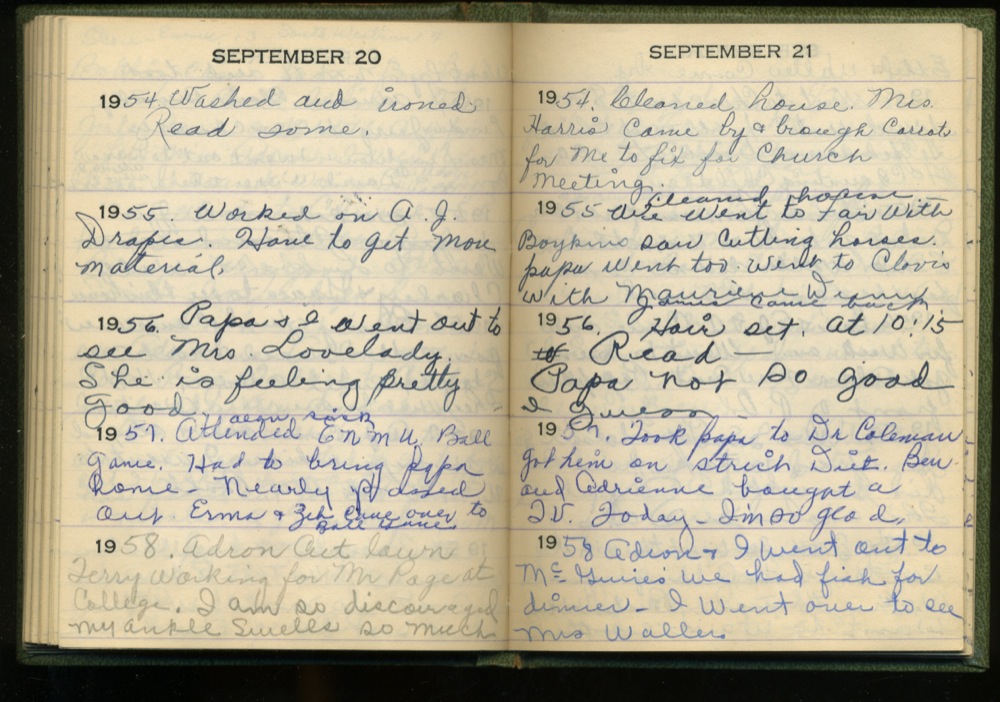 SEPTEMBER 20
1954 Washed and ironed.
Read some.
1955. Worked on A. J.
Drapes. Have to get more
material.
1956. Papa & I went out to
see Mrs. Lovelady.
She is feeling pretty
good.
1957. Attended ENMU Ball
Game. Had to bring papa
home - Nearly passed
out. Erma & Zek came over to
Ball Game
1958. Adron Cut lawn
Terry Working for Mr Page at
College. I am so discouraged
my ankle Swells so much
SEPTEMBER 21
1954. Cleaned house. Mrs.
Harris Came by & brough Carrots
for Me to fix for Church
Meeting.
cleaned house
1955 We went to Fair With
Boykins saw Cutting horses.
papa went too. went to Clovis
with Maurine
came back
1956. Hair set. at 10:15
Read —
Papa not so good
I guess
1957. Took papa to Dr Coleman
got him on strich Diet. Ben
and Adrienne bought a
TV. Today - I'm so glad.
1958 Adron & I went out to
Mc Guires we had fish for
dinner - I Went over to see
Mrs Wallers